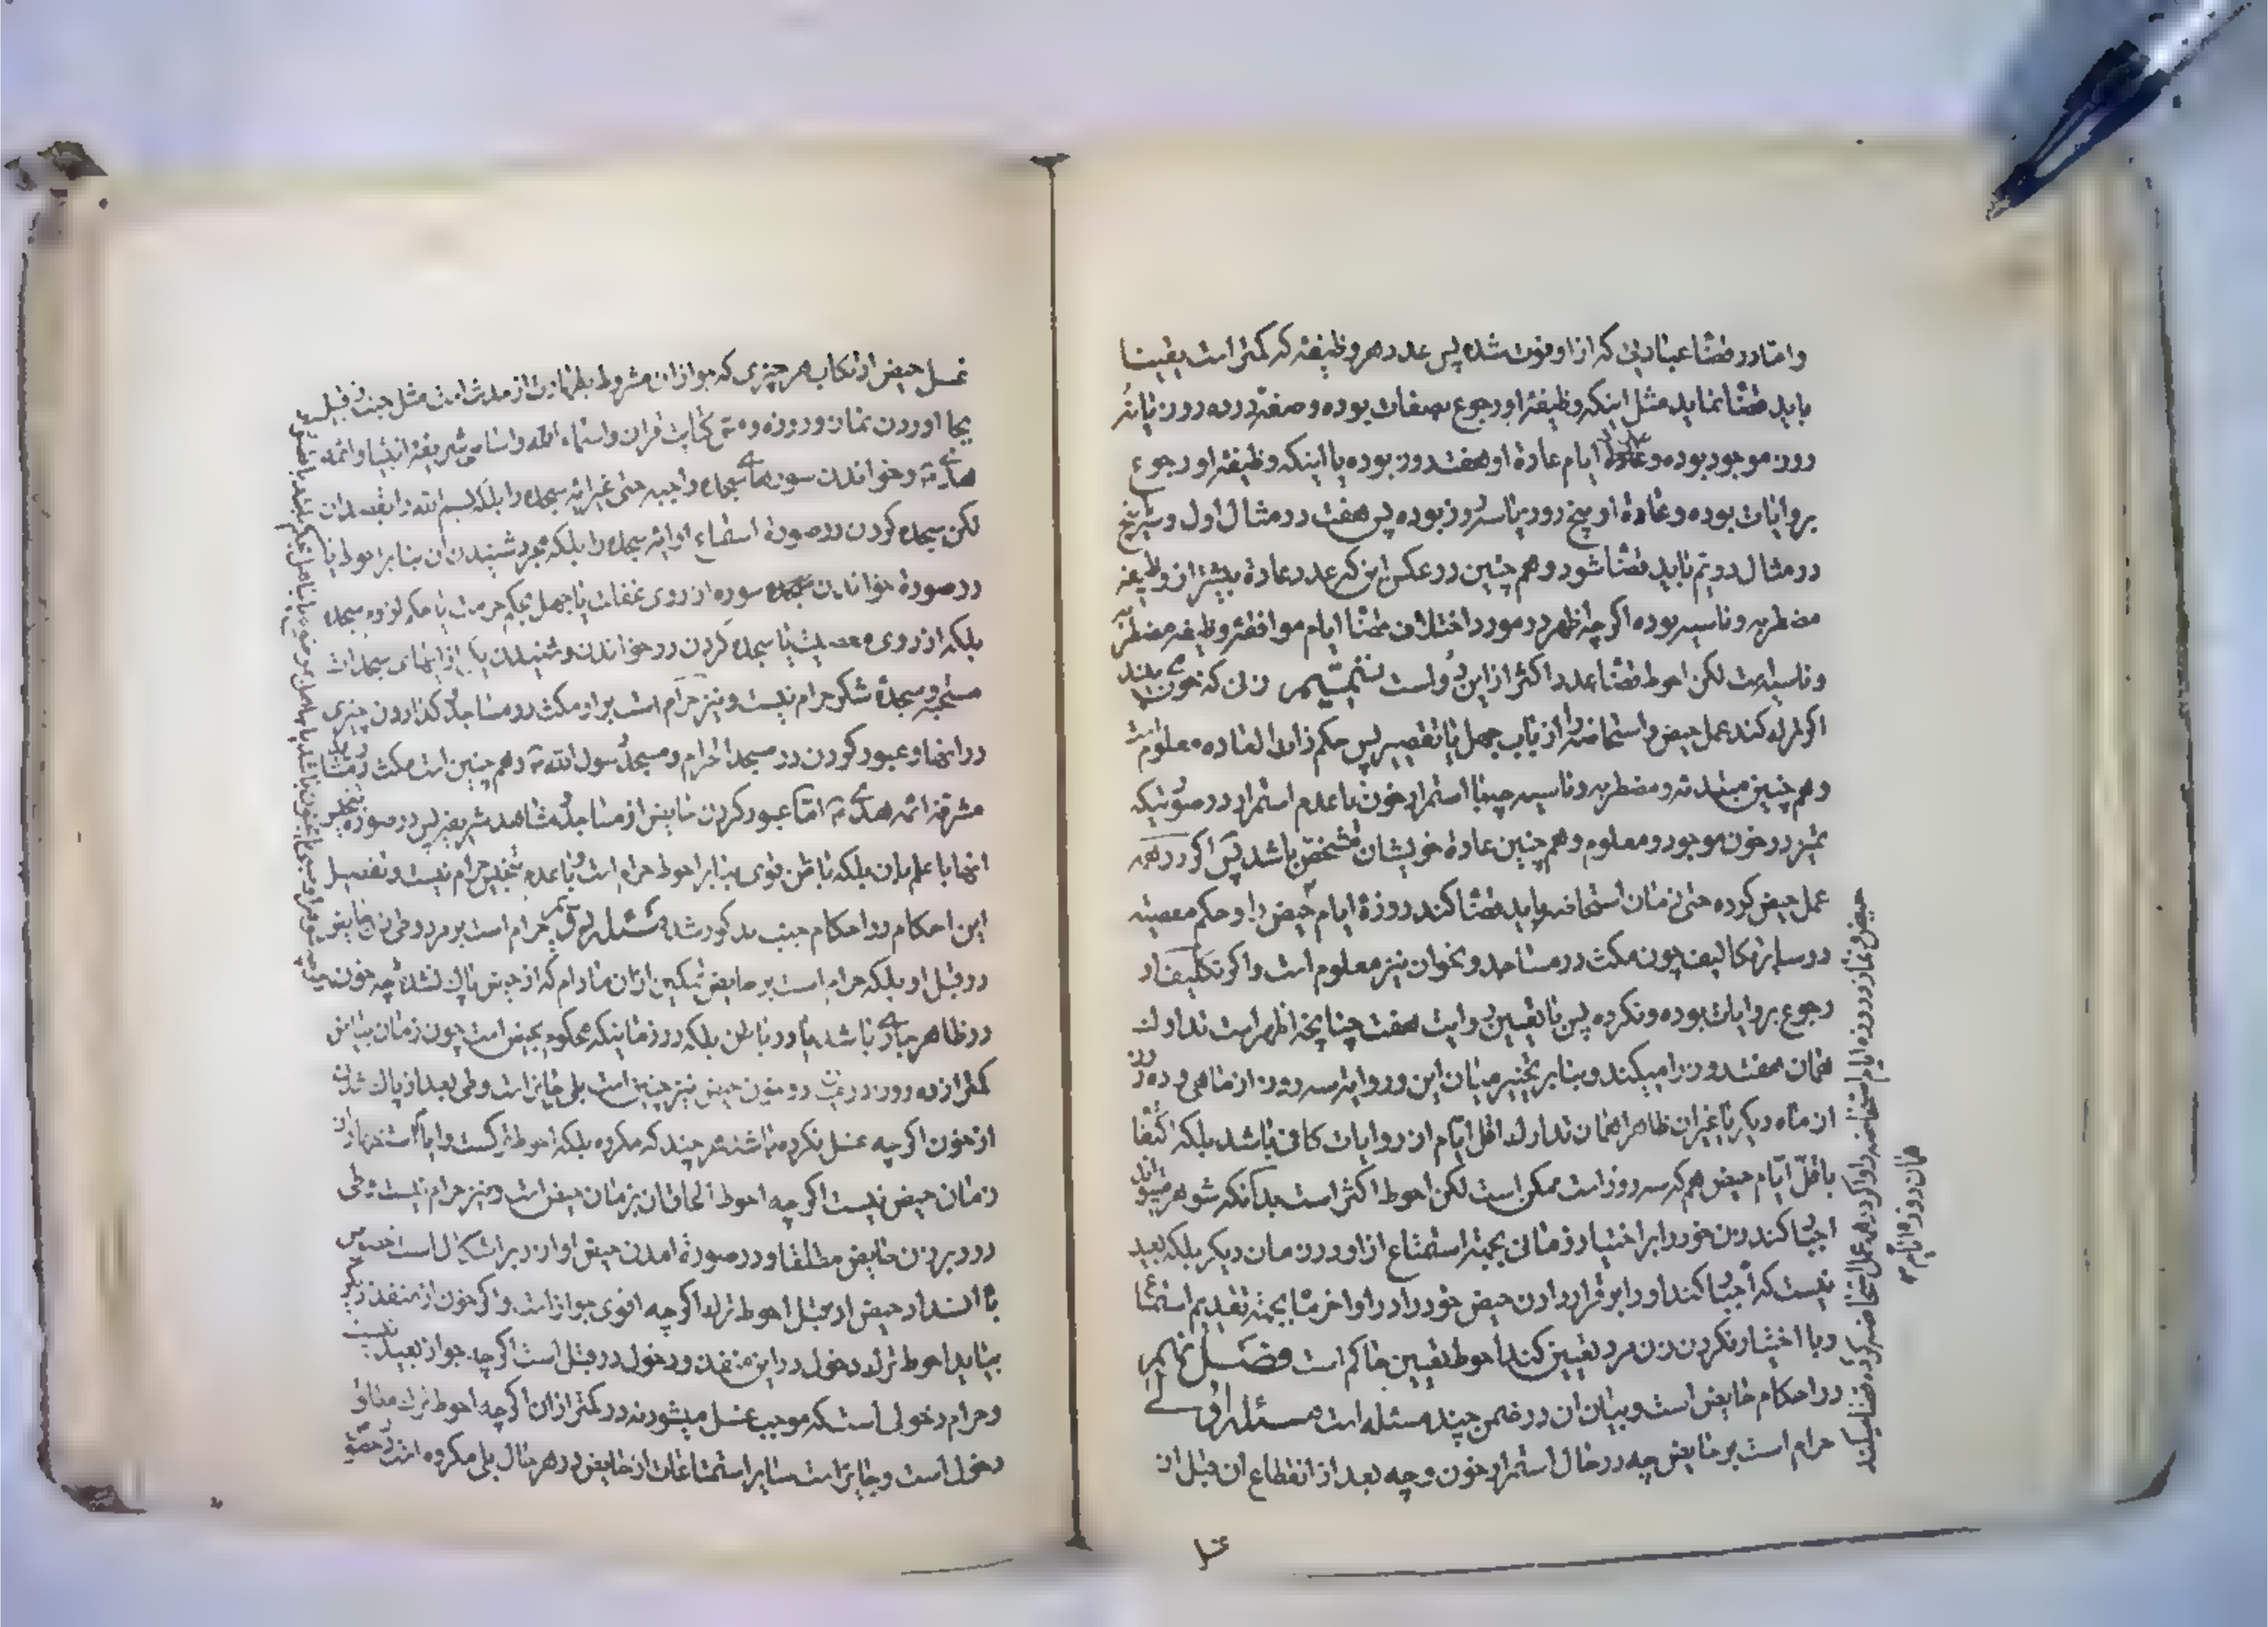 واما در قضا عباداتی که از او فوت شده پس عدد هر وظیفه که کمتر است یقینا
باید قضا نماید مثل اینکه وظیفه او رجوع بصفات بوده و صفة در ده روز یا نه
روز موجود بوده و ایام عادة او هفت روز بوده یا اینکه وظیفه او رجوع
بروایات بوده و عادة او پنج روز یا سه روز بوده پس هفت در مثال اول و
در مثال دویم باید قضا شود و هم چنین در عکس این که عدد عادة بیشتر از وظیفه
مضطربه و ناسیه بوده اگر چه اظهر در مورد اختلاف قضا ایام موافقة وظیفه مضطربه
و ناسیه است لکن احوط قضا عدد اکثر از این دو است تتمیم زنی که خون بیند
اگر ترک کند عمل حیض و استحاضه را از باب جهل یا تقصیر پس حکم ذات العاده معلوم است
و هم چنین مبتدئه و مضطربه و ناسیه چه با استمرار خون یا عدم استمرار در صورتیکه
تمیز در خون موجود و معلوم و هم چنین عادة خویشان مشخص باشد پس اگر در همه
عمل حیض کرده حتی زمان استحاضه باید قضا کند روزۀ ایام حیض را و حکم معصیته
در سایر تکالیف چون مکث در مساجد و نحو ان نیز معلوم است و اگر تکلیف او
رجوع بروایات بوده و نکرده پس با تعیین روایت هفت چنانچه اظهر است تدارک
همان هفت روز را میکند و بنا بر تخییر میان این و روایة سه روز از ماهی و ده روز
از ماه دیگر یا غیر ان ظاهرا همان تدارک اقل ایام از روایات کافی باشد بلکه اکتفا
باقل ایام حیض هم که سه روز است ممکن است لکن احوط اکثر است بدانکه شوهر
اجبار کند زن خود را بر اختیار زمانی بجهة استمتاع از او در زمان دیگر بلکه بعید
نیست که اجبار کند او را بر قرار دادن حیض خود را در اواخر ماه بجهة تقدیم استمتاع
و با اختیار نکردن زن مرد تعیین کند احوط تعیین حاکم است فصل نهم
در احکام حایض است و بیان ان در ضمن چند مسئله است مسئله اولی
حرام است بر حایض چه در حال استمرار خون و چه بعد از انقطاع ان قبل از
حیض و نماز و روزه ایام استحاضه را و اگر در همه عمل استحاضه کرده قضا میکند
همان روزه ایام
غسل
غسل حیض ارتکاب هر چیزی که جواز ان مشروط بطهارت از حدث است مثل جنب از قبیل
بجا اوردن نماز و روزه و مس کتابت قران و اسماء الله و اسامی شریفة انبیا و ائمه
هدی و خواندن سورهای سجده واجبه حتی غیر ایه سجده را بلکه بسم الله را بقصد ان
لکن سجده کردن در صورة استماع او ایه سجده را بلکه مجرد شنیدن ان بنا بر احوط یا
در صورة خواندن سوره از روی غفلت یا جهل بحکم حرمت یا حکم لزوم سجده
بلکه از روی معصیت یا سجده کردن در خواندن و شنیدن یکی از ایهای سجدات
مستحبه و سجدۀ شکر حرام نیست و نیز حرام است بر او مکث در مساجد و گذاردن چیزی
در انها و عبور کردن در مسجد الحرام و مسجد رسول الله و هم چنین است مکث در مشاهد
مشرفه ائمه هدی اما عبور کردن حایض از مساجد و مشاهد شریفه پس در صورة تنجیس
انها با علم بان بلکه با ظن قوی بنا بر احوط حرام است و با عدم تنجیس حرام نیست و تفصیل
این احکام در احکام جنب مذکور شد مسئله دویم حرام است بر مرد وطی زن حایض
در قبل او بلکه حرام است بر حایض تمکین از ان مادام که از حیض پاک نشده چه خون
در ظاهر جاری باشد یا در باطن بلکه در زمانیکه محکوم بحیض است چون زمان بیاض
کمتر از ده روز در بین دو خون حیض نیز چنین است بلی جایز است وطی بعد از پاک شدن
از خون اگر چه غسل نکرده باشد هر چند که مکروه بلکه احوط ترک است و ایام استظهار از
زمان حیض نیست اگر چه احوط الحاق ان بزمان حیض است و نیز حرام نیست وطی
در دبر زن حایض مطلقا و در صورة امدن حیض او از دبر اشکال است خصوص
با انسداد حیض از قبل احوط ترک اگر چه اقوی جواز است و اگر خون از منفذ دیگر
بیاید احوط ترک دخول در این منفذ و دخول در قبل است اگر چه جواز بعید نیست
و حرام دخولی است که موجب غسل میشود نه در کمتر از ان اگر چه احوط ترک مطلق
دخول است و جایز است سایر استمتاعات از حایض در هر حال بلی مکروه است